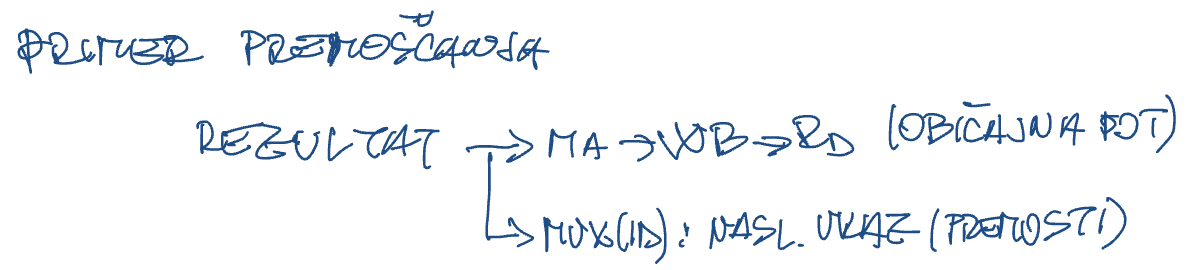 PRIMER PREMOŠČANJA
REZULTAT → MA → WB → RD (OBIČAJNA POT)
→ MUX(ID): NASL. UKAZ (PREMOSTI)